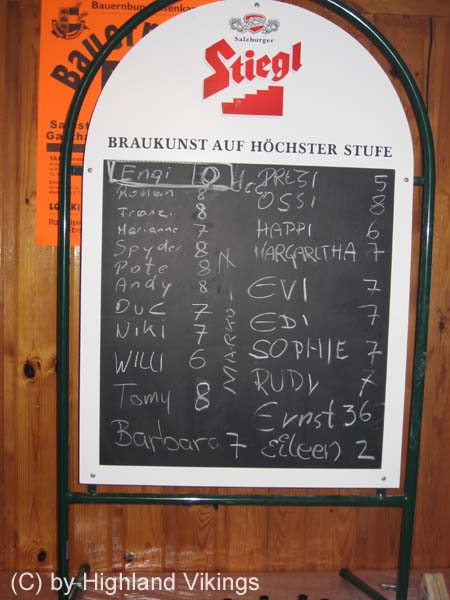 Bauernbu
Bauern
Salzburger
Stiegl
BRAUKUNST AUF HÖCHSTER STUFE
Engi 0
Roman 8
Franzi 8
Marianne 7
Spyder 8
Pote 8
Andy 8
Duc 7
Niki 7
WILLI 6
Tomy 8
Barbara 7
MARKUS
PRESI 5
OSSI 8
HAPPI 6
MARGARITHA 7
EVI 7
EDI 7
SOPHIE 7
RUDY 7
Ernst 36
Eileen 2
(C) by Highland Vikings